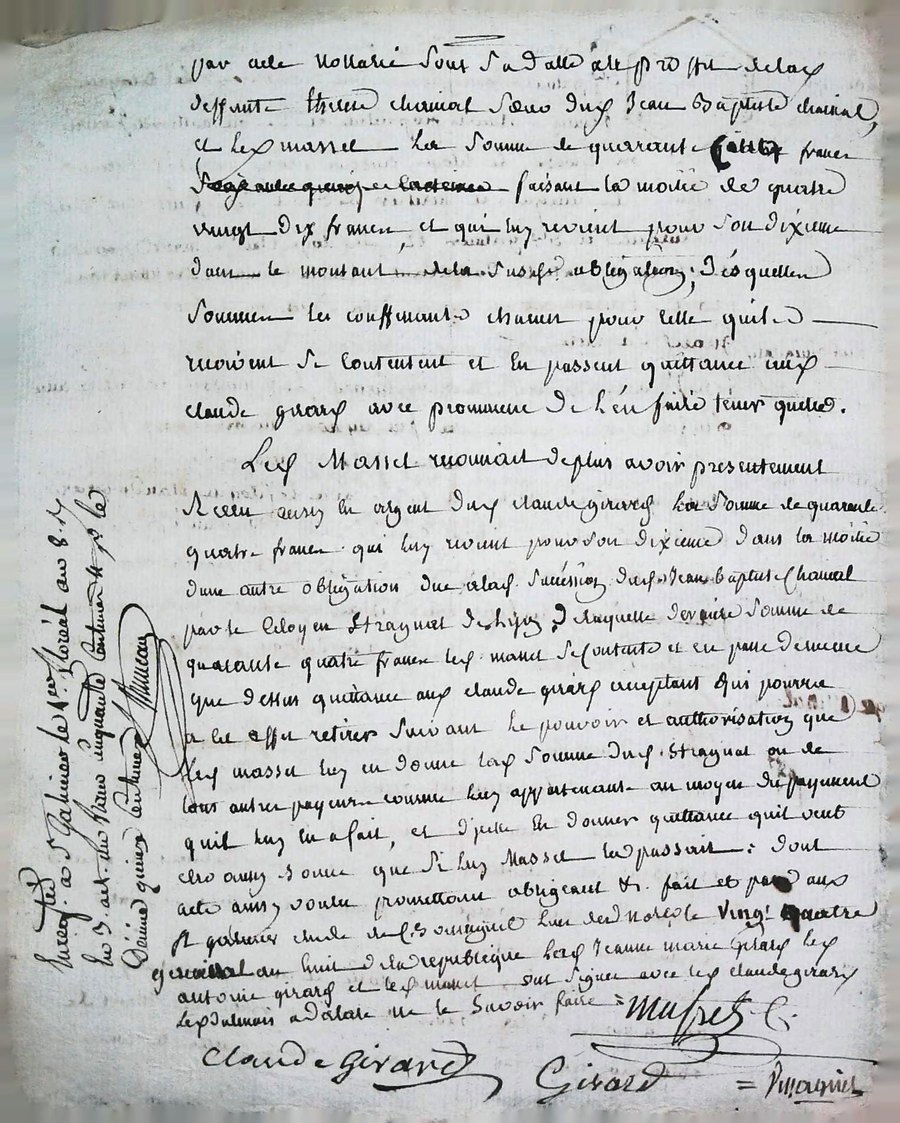 par acte nottarié sous sa datte au proffit de lad
deffunte therese chamal sœur dud Jean Baptiste chamal,
et led masset la somme de quarante francs
faisant la moitié de quatre
vingt dix francs, et qui luy revient pour son dixieme
dans le montant de la susd obligation; desquelles
sommes les conffrontants chacun pour celle quils
recoivent se contentent et en passent quittance aud
claude girard avec promesse de l'en faire tenir quitte.
Led Masset reconnait de plus avoir presentement
Receu aussy en argent dud claude girard la somme de quarante
quatre francs qui luy revient pour son dixieme dans la moitié
dune autre obligation due a lad succession dud Jean Baptiste Chamal
par le Citoyen Stragnat de lyon, de laquelle derniere somme de
quarante quatre francs led masset se contente et en passe de meme
que dessus quittance aud claude girard acceptant qui pourra
a cet effet retirer suivant le pouvoir et authorisation que
led masset luy en donne lad somme dud Stragnat ou de
tous autres payeurs comme luy appartenante au moyen du payement
quil luy en a fait, et d'icelle en donner quittance qui vaut
comme si luy Masset la passait: dont
acte ainsy voulu promettant obligeant &. fait et passé aux
St galmier etude de l'un des Notes le Vingt quatre
germinal an huit de la republique Lad Jeanne marie girard led
antoine girard et led masset ont signés avec led claude girard
a declaré ne le savoir faire =
Masset
Claude Girard
Girard
Enregistré a St Galmier le 1er floréal an 8. fo 17
Ro 3 art. un franc cinquante centimes pr le
Dixieme quinze Centimes